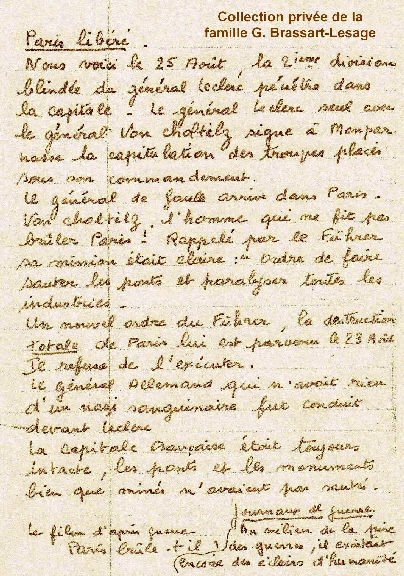 Collection privée de la
famille G. Brassart-Lesage
Paris libéré.
Nous voici le 25 Août, la 2ième division
blindée du général Leclerc pénètre dans
la capitale - Le général Leclerc seul avec
le général Von Choltilz signe à Monpar
nasse la capitulation des troupes placés
sous son commandement.
Le général de Gaule arrive dans Paris.
Von Choltilz, l'homme qui ne fit pas
brûler Paris ! Rappelé par le Führer
sa mission était claire : " Ordre de faire
sauter les ponts et paralyser toutes les
industries -
Un nouvel ordre du Führer, la destruction
totale de Paris lui est parvenu le 23 Août
Il refuse de l'exécuter.
Le général Allemand qui n'avait rien
d'un nazi sanguinaire fut conduit
devant Leclerc
La capitale Française était toujours
intacte, les ponts et les monuments
bien que minés n'avaient pas sautés.
Journaux de guerre.
Le film d'après guerre Au milieu de la pire
Paris brûle-t-il ? des guerres, il existait
encore des éclairs d'humanité